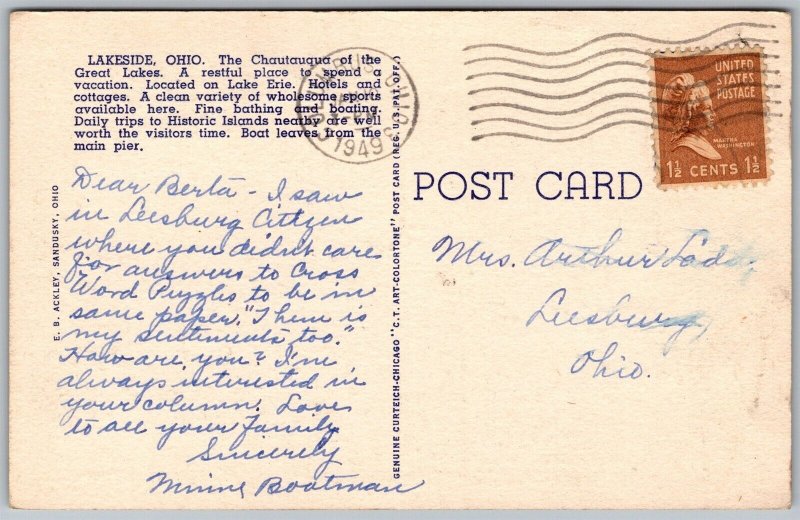 LAKESIDE, OHIO. The Chautauqua of the
Great Lakes. A restful place to spend a
vacation. Located on Lake Erie. Hotels and
cottages. A clean variety of wholesome sports
available here. Fine bathing and boating.
Daily trips to Historic Islands nearby are well
worth the visitors time. Boat leaves from the
main pier.
Dear Berta - I saw
in Leesburg Citizen
where you didn't care
for answers to Cross
Word Puzzles to be in
same paper. "Them is
my sentiments too."
How are you? I'm
always interested in
your column. Love
to all your family
Sincerely
Boatman
E. B. ACKLEY, SANDUSKY, OHIO
GENUINE CURTEICH-CHICAGO "C. T. ART-COLORTONE" POST CARD (REG. U. S. PAT. OFF.)
COLUMBUS, OHIO
1949
UNITED
STATES
POSTAGE
MARTHA
WASHINGTON
1½ CENTS 1½
POST CARD
Mrs. Arthur Ladd,
Leesburg,
Ohio.